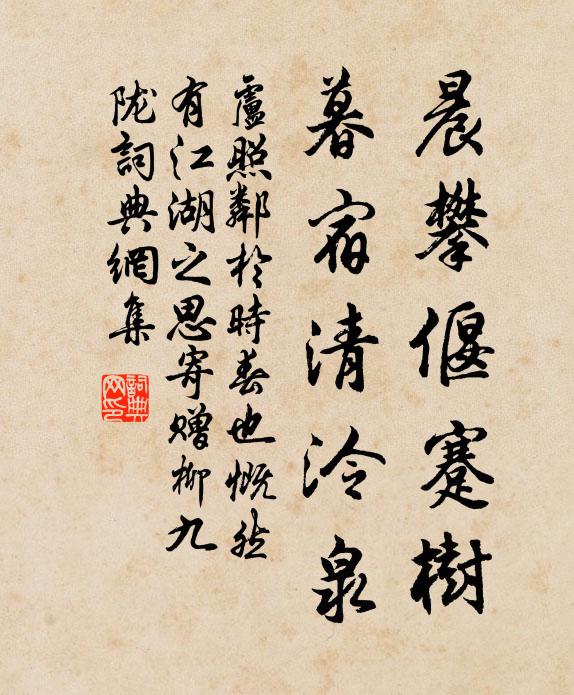 晨攀偃蹇樹
暮宿清泠泉
盧照鄰於時春也慨然
有江湖之思寄贈柳九
陇詞典網集
詞典网印